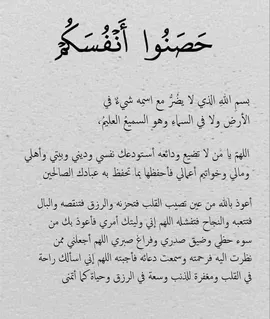 حَصَنُوا أَنْفُسَكُمْ
بسمِ اللهِ الذي لا يضُرُّ مع اسمِه شيءٌ في
الأرضِ ولا في السماءِ وهو السميعُ العليمُ،
اللهمَ يا مَن لا تضيع ودائعه أستودعك نفسي وديني وبيتي وأهلي
ومالي وخواتيم أعمالي فأحفظها بما تحفظ به عبادك الصالحين
أعوذ بالله من عين تصيب القلب فتحزنه والرزق فتنقصه والبال
فتتعبه والنجاح فتفشله اللهم إني وليتك أمري فأعوذ بك من
سوء حظي وضيق صدري وفراغ صبري اللهم أجعلني ممن
نظرت اليه فرحمته وسمعت دعائه فأجبته اللهم إني اسألك راحة
في القلب ومغفرة للذنب وسعة في الرزق وحياة كما أتمنى